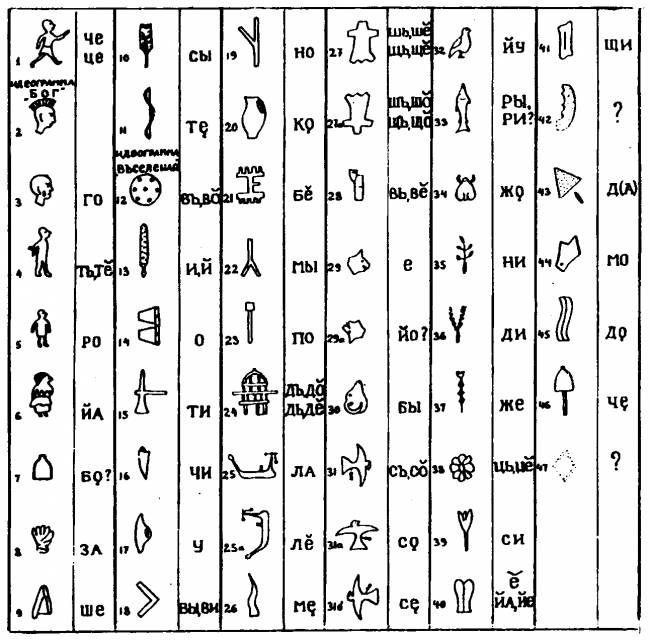 1 ЧЕ ЦЕ 10 СЫ 19 НО 27 ШЬ,ШĔ ЩЬ,ЩĔ 32 ЙУ 41 ЩИ
ИДЕОГРАММА "БОГ"
2 11 ТȨ 20 КО̨ 27а ШЪ,ШŎ ЩЪ,ЩŎ 33 РЫ, РИ? 42 ?
ИДЕОГРАММА ВЪСЕЛЕНАЙ
3 ГО 12 ВЪ,ВŎ 21 БĔ 28 ВЬ,ВĔ 34 ЖО̨ 43 Д(А)
4 ТЬ,ТĔ 13 И,Й 22 МЫ 29 Е 35 НИ 44 МО
5 РО 14 О 23 ПО 29а ЙО? 36 ДИ 45 ДО̨
6 ЙА 15 ТИ 24 ДЪ,ДŎ ДЬ,ДĔ 30 БЫ 37 ЖЕ 46 ЧȨ
7 БО̨? 16 ЧИ 25 ЛА 31 СЪ,СŎ 38 ЦЬ,ЦĔ 47 ?
8 ЗА 17 У 25а ЛĔ 31а СО̨ 39 СИ
9 ШЕ 18 ВЫ,ВИ 26 МȨ 31б СȨ 40 Ĕ ЙА,ЙЕ